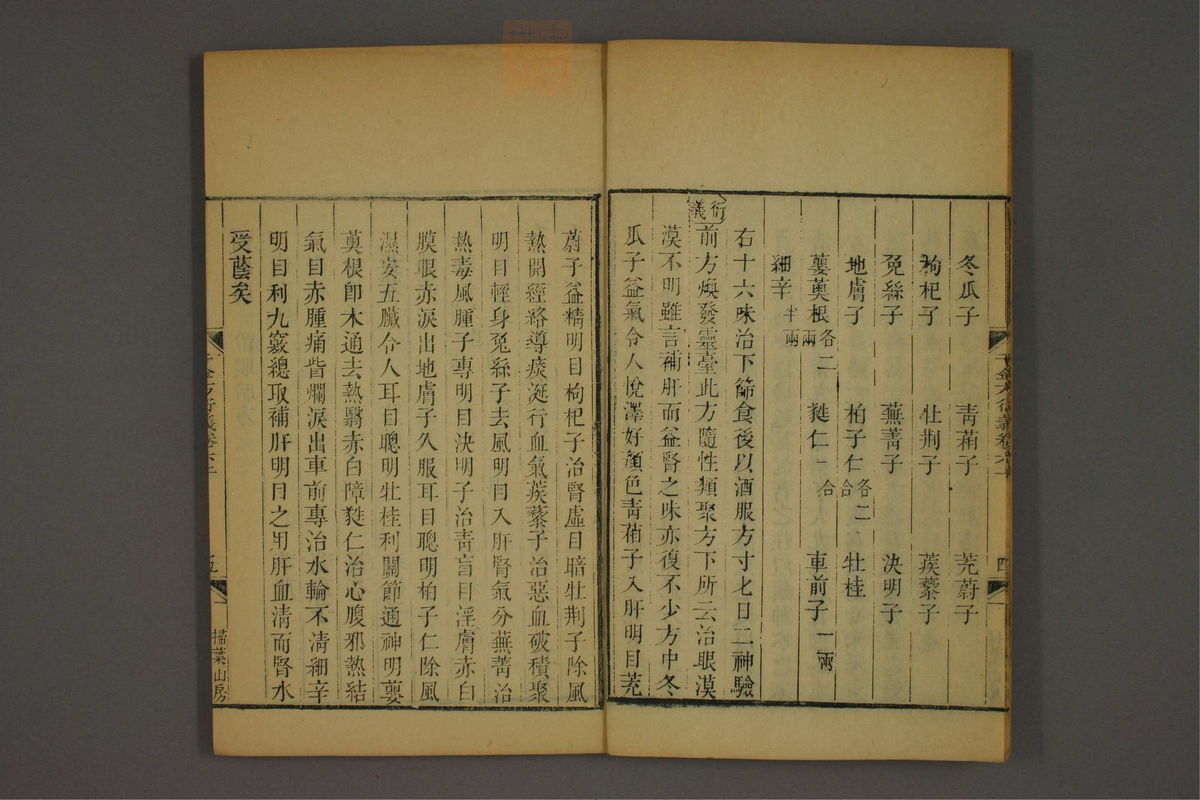 冬瓜子 青葙子 茺蔚子
枸杞子 牡荆子 蒺藜子
兔絲子 蕪菁子 決明子
地膚子 柏子仁各二合 牡桂
蕿萸根各二兩 蕤仁一合 車前子一兩
細辛半兩
右十六味治下篩食後以酒服方寸匕日二神驗
衍義
前方煥發靈臺此方隨性類聚方下所云治眼漠
漠不明雖言補肝而益腎之味亦復不少方中冬
瓜子益氣令人悅澤好顔色靑葙子入肝明目茺
蔚子益精明目枸杞子治腎虛目暗牡荆子除風
熱開經絡導痰涎行血氣蒺藜子治惡血破積聚
明目輕身兔絲子去風明目入肝腎氣分蕪菁治
熱毒風腫子專明目決明子治靑盲目淫膚赤白
膜眼赤淚出地膚子久服耳目聰明柏子仁除風
濕安五臟令人耳目聰明牡桂利關節通神明蕿
萸根卽木通去熱翳赤白障蕤仁治心腹邪熱結
氣目赤腫痛眥爛淚出車前專治水輪不淸細辛
明目利九竅總取補肝明目之用肝血淸而腎水
受蔭矣
五
掃葉山房